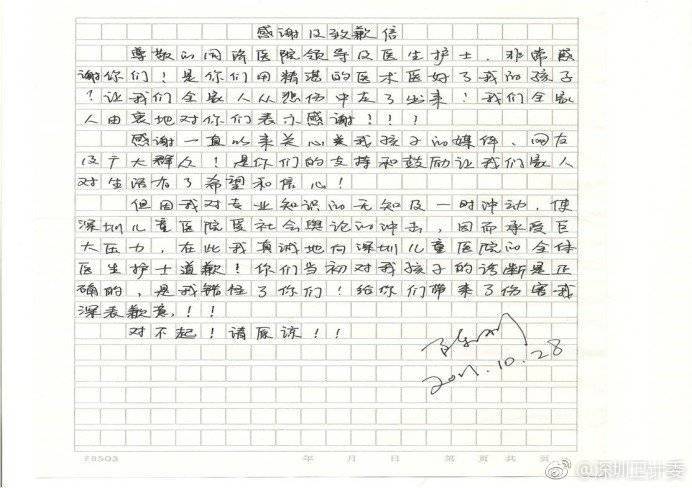 感谢及致歉信
尊敬的同济医院领导及医生护士、非常感
谢你们！是你们用精湛的医术医好了我的孩子
！让我们全家人从悲伤中走了出来！我们全家
人由衷地对你们表示感谢！！！
感谢一直以来关心关我孩子的媒体、网友
及广大群众！是你们的支持和鼓励让我们家人
对生活有了希望和信心！
但因我对专业知识的无知及一时冲动，使
深圳儿童医院受社会舆论的冲击，因而承受巨
大压力，在此我真诚地向深圳儿童医院的全体
医生护士道歉！你们当初对我孩子的诊断是正
确的，是我错怪了你们！给你们带来了伤害我
深表歉意！！
对不起！请原谅！！
2011.10.28
F8503 年 月 日 第 页 共 页
@深圳卫计委